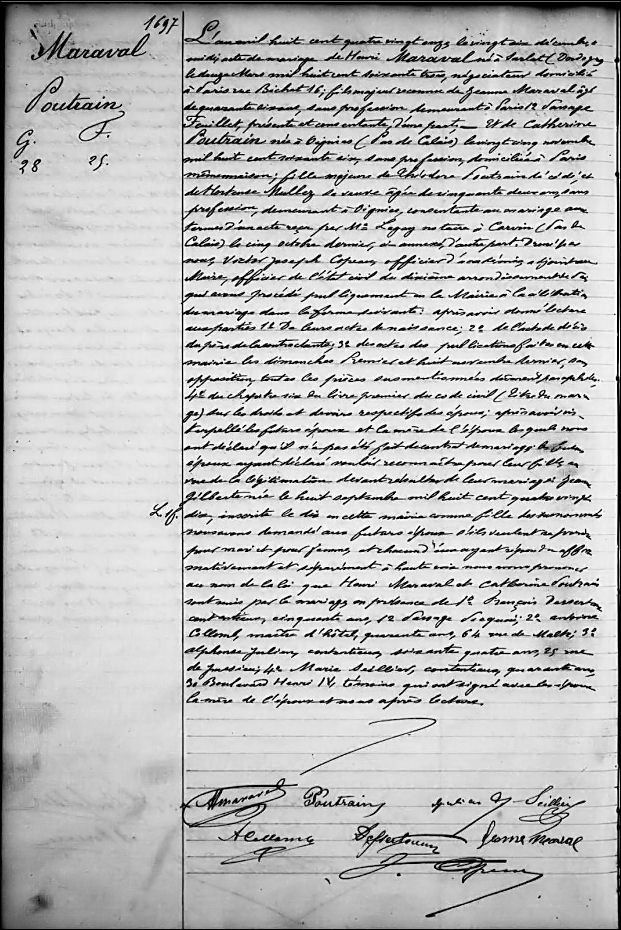 1697
Maraval
Poutrain
G. F.
28 25.
L'an mil huit cent quatre vingt onze, le vingt six décembre, à
midi, acte de mariage de Henri Maraval né à Sarlat (Dordogne)
le douze Mars mil huit cent soixante trois, négociateur domicilié
à Paris rue Bichat 16; fils majeur reconnu de Jeanne Maraval âgée
de quarante ans, sans profession demeurant à Paris 12 Passage
Feuillet, présente et consentante, d'une part, _ Et de Catherine
Poutrain née à Oignies (Pas de Calais) le vingt cinq novembre
mil huit cent soixante six, sans profession, domiciliée à Paris
même maison; fille majeure de Théodore Poutrain décédé, et
de Hortense Mullez sa veuve âgée de cinquante deux ans, sans
profession, demeurant à Oignies, consentante au mariage aux
termes d'un acte reçu par Me Legay notaire à Carvin (Pas de
Calais) le cinq octobre dernier, ci annexé, d'autre part. Devant
nous, Victor Joseph Copeau, officier d'académie, adjoint au
Maire, officier de l'état civil du dixième arrondissement de Paris
qui avons procédé publiquement en la Mairie à la célébration
du mariage dans la forme suivante: après avoir donné lecture
aux parties 1° De leurs actes de naissance; 2° de l'acte de décès
du père de la contractante; 3° des actes des publications faites en cette
mairie les dimanches Premier et huit novembre dernier, sans
opposition, toutes les pièces susmentionnées dûment paraphées,
4° du chapitre six du livre premier du code civil (titre du maria-
ge) sur les droits et devoirs respectifs des époux; après avoir in-
terpellé les futurs époux et la mère de l'époux lesquels nous
ont déclaré qu'il n'a pas été fait de contrat de mariage, les futurs
époux ayant déclaré vouloir reconnaître pour leur fille, en
vue de la légitimation devant résulter de leur mariage: Jeanne
Gilberte née le huit septembre mil huit cent quatre vingt
dix, inscrite le dix en cette mairie comme fille des susnommés
nous avons demandé aux futurs époux s'ils veulent se prendre
pour mari et pour femme, et chacun d'eux ayant répondu affir-
mativement et séparément à haute voix nous avons prononcé
au nom de la loi que Henri Maraval et Catherine Poutrain
sont unis par le mariage, en présence de 1° François
cinquante ans, 12 Passage; 2° Antoine
Collomb, maître d'hôtel, quarante ans, 64 rue de Malte; 3°
Alphonse Julien, soixante quatre ans, 25 rue
de Jussieu; 4° Marie Seillier, quarante ans,
30 Boulevard Henri IV, témoins qui ont signé avec les époux
la mère de l'époux et nous après lecture.
HMaraval Poutrain Julien Seillier
Jeanne Maraval